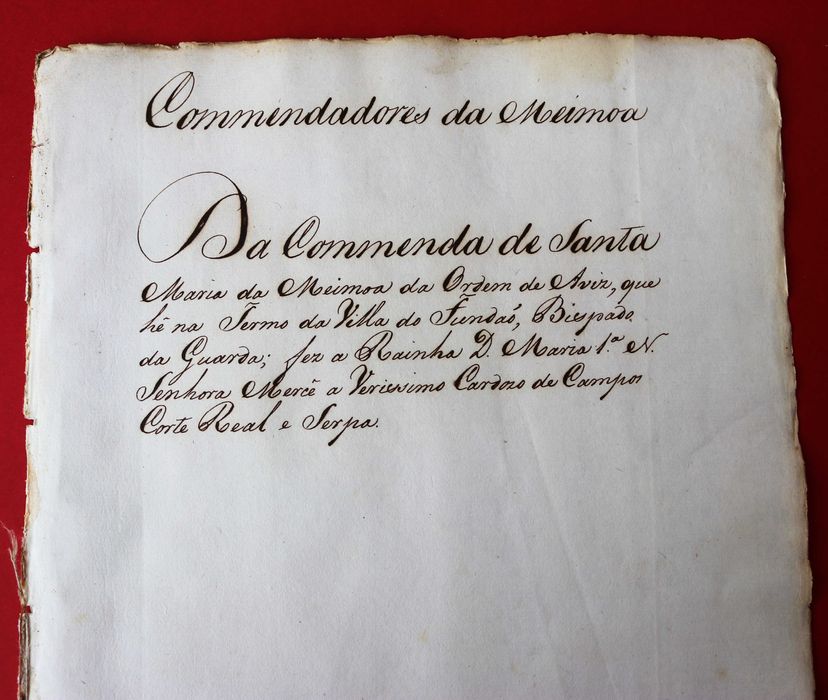 Commendadores da Meimoa
Da Commenda de Santa
Maria da Meimoa da Ordem de Aviz, que
hê na Termo da Villa do Fundaó, Bispado
da Guarda; fez a Rainha D. Maria 1.ª N.
Senhora Mercê a Verissimo Cardozo de Campos
Corte Real e Serpa.